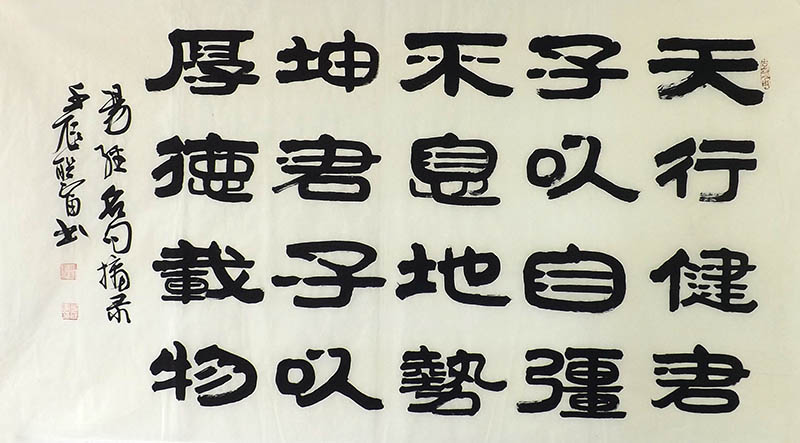 天行健君
子以自彊
不息地勢
坤君子以
厚德載物
易經名句摘录
壬辰聪富书